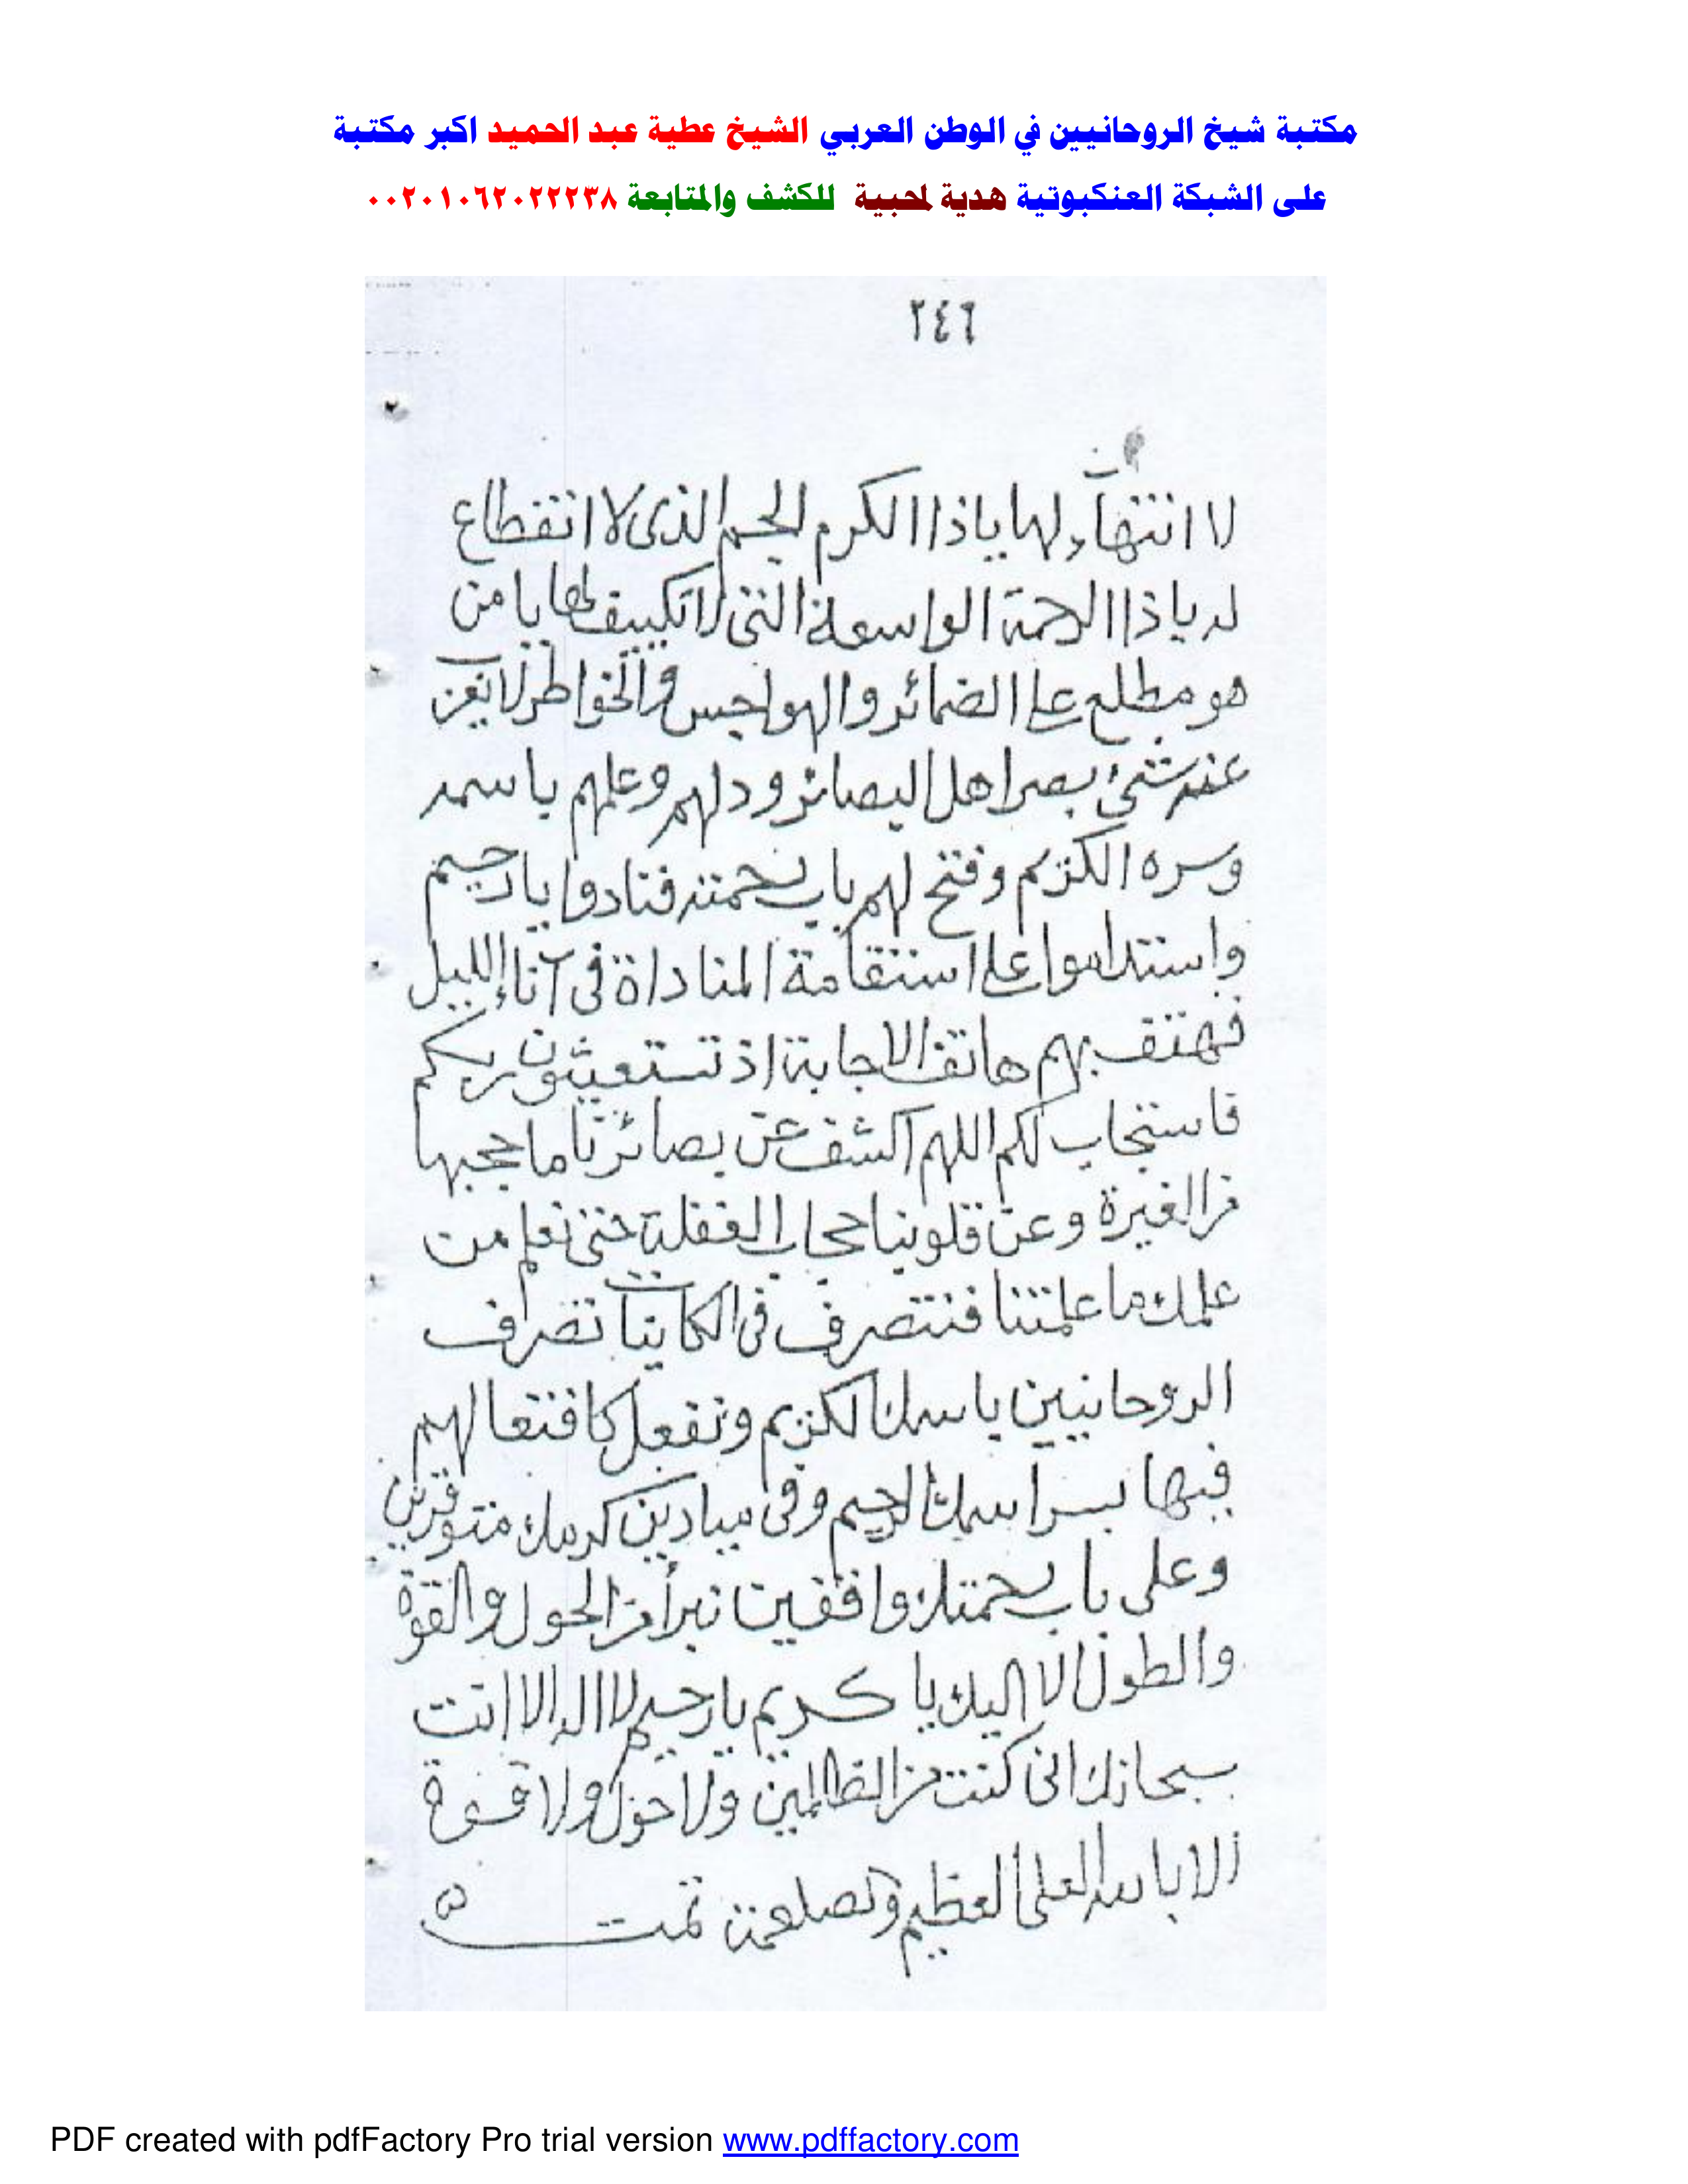 مكتبة شيخ الروحانيين في الوطن العربي الشيخ عطية عبد الحميد اكبر مكتبة
على الشبكة العنكبوتية هدية لمحبية للكشف والمتابعة ٠٠٢٠١٠٦٢٠٢٢٢٣٨
٢٤٦
لا انتهاء لها ياذا الكرم الجسيم الذى لا انقطاع
له ياذا الرحمة الواسعة التى لا تكييف لها يا من
هو مطلع على الضمائر والهواجس والخواطر لا يعزب
عنه شئ بصر اهل البصائر ودلهم وعلمهم باسمه
وسره الكريم وفتح لهم باب رحمته فنادوا يا رحيم
واستداموا على استقامة المناداة فى آناء الليل
فهتف بهم هاتف الاجابة اذ تستغيثون ربكم
فاستجاب لكم اللهم اكشف عن بصائرنا ما حجبها
من الغيرة وعن قلوبنا حجاب الغفلة حتى نعلم من
علمك ما علمتنا فنتصرف فى الكاينات تصرف
الروحانيين باسمك الكريم ونفعل
فيها بسر اسمك الرحيم وفى ميادين كرمك
وعلى باب رحمتك واقفين نبرأ من الحول والقوة
والطول الا اليك يا كريم يا رحيم لا اله الا انت
سبحانك انى كنت من الظالمين ولا حول ولا قوة
الا بالله العلى العظيم تمت
PDF created with pdfFactory Pro trial version www.pdffactory.com